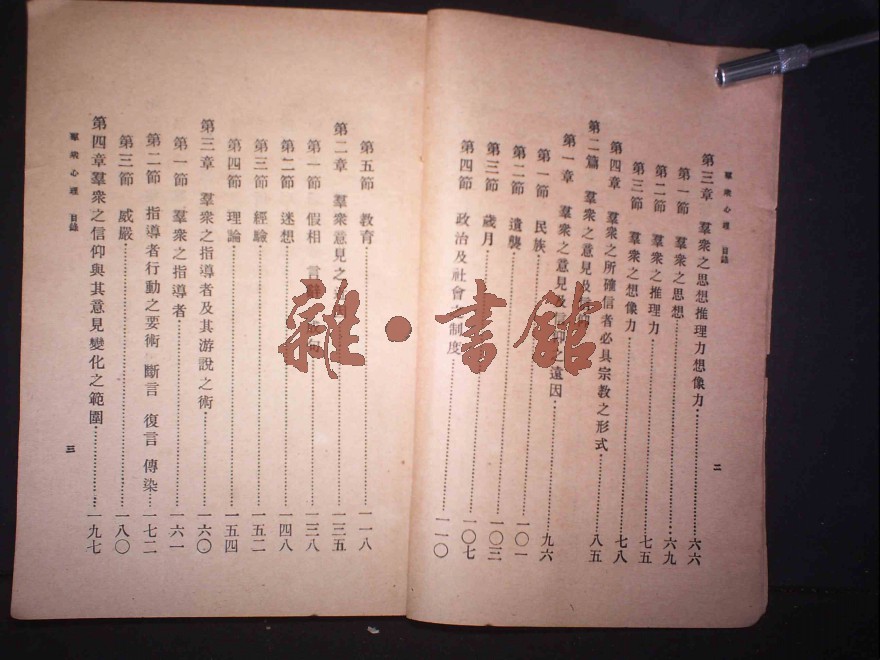 羣衆心理 目錄
第三章 羣衆之思想推理力想像力 六六
第一節 羣衆之思想 六九
第二節 羣衆之推理力 七五
第三節 羣衆之想像力 七八
第四章 羣衆之所確信者必具宗教之形式 八五
第二篇 羣衆之意見及信仰
第一章 羣衆之意見及信仰 遠因
第一節 民族 九六
第二節 遺襲 一〇一
第三節 歲月 一〇三
第四節 政治及社會 制度 一〇七
一一〇
二
第五節 教育 一一八
第二章 羣衆意見之 一三五
第一節 假相 言 一三八
第二節 迷想 一四八
第三節 經驗 一五二
第四節 理論 一五四
第三章 羣衆之指導者及其游說之術 一六〇
第一節 羣衆之指導者 一六一
第二節 指導者行動之要術 斷言 復言 傳染 一七二
第三節 威嚴 一八〇
第四章羣衆之信仰與其意見變化之範圍 一九七
羣衆心理 目錄
三
雜·書館